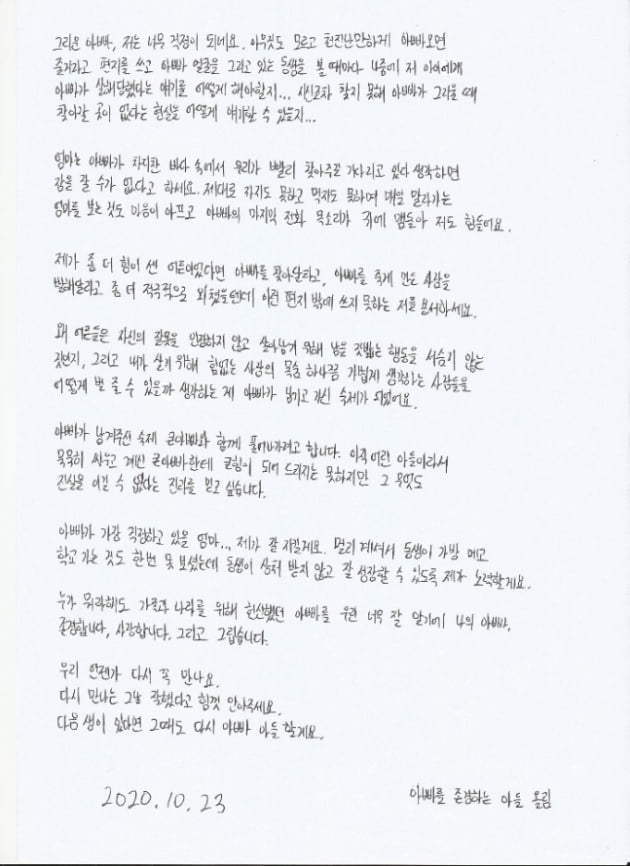 그리운 아빠, 저는 너무 걱정이 되네요. 아무것도 모르고 천진난만하게 아빠오면
줄거라고 편지를 쓰고 아빠 얼굴을 그리고 있는 동생을 볼 때마다 나중에 저 아이에게
아빠가 살해당했다는 얘기를 어떻게 해야할지... 시신조차 찾지 못해 아빠가 그리울 때
찾아갈 곳이 없다는 현실을 어떻게 얘기할 수 있을지...
엄마는 아빠가 차디찬 바다 속에서 우리가 빨리 찾아주길 기다리고 있다 생각하면
잠을 잘 수가 없다고 하세요. 제대로 자지도 못하고 먹지도 못하여 매일 말라가는
엄마를 보는 것도 마음이 아프고 아빠의 마지막 전화 목소리가 귀에 맴돌아 저도 힘들어요.
제가 좀 더 힘이 센 어른이었다면 아빠를 찾아달라고, 아빠를 죽게 만든 사람을
벌해달라고 좀 더 적극적으로 외쳤을텐데 이런 편지 밖에 쓰지 못하는 저를 용서하세요.
왜 어른들은 자신의 잘못을 인정하지 않고 살아남기 위해 남을 짓밟는 행동을 서슴지 않는
것인지, 그리고 내가 살기 위해 힘없는 사람의 목숨 하나쯤 가볍게 생각하는 사람들을
어떻게 벌 줄 수 있을까 생각하는 게 아빠가 남기고 가신 숙제가 되었어요.
아빠가 남겨주신 숙제 큰아빠와 함께 풀어나가려고 합니다. 아직 어린 아들이라서
묵묵히 싸우고 계신 큰아빠한테 큰힘이 되어 드리지는 못하지만 그 무엇도
진실을 이길 수 없다는 진리를 믿고 싶습니다.
아빠가 가장 걱정하고 있을 엄마... 제가 잘 지킬게요. 멀리 계셔서 동생이 가방 메고
학교 가는 것도 한번 못 보셨는데 동생이 상처 받지 않고 잘 성장할 수 있도록 제가 노력할게요.
누가 뭐라해도 가족과 나라를 위해 헌신했던 아빠를 우린 너무 잘 알기에 나의 아빠,
존경합니다, 사랑합니다. 그리고 그립습니다.
우리 언젠가 다시 꼭 만나요.
다시 만나는 그날 잘했다고 힘껏 안아주세요.
다음 생이 있다면 그때도 다시 아빠 아들 할게요.
2020.10.23
아빠를 존경하는 아들 올림